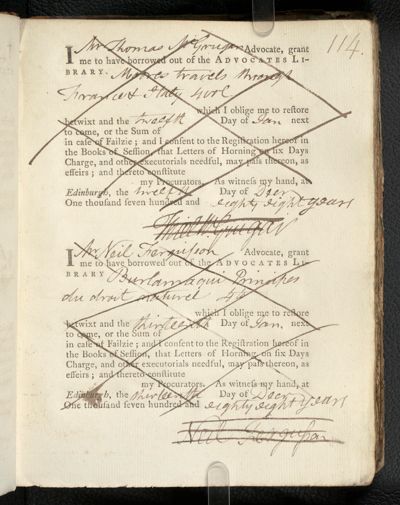 114.
I Mr Thomas McGrugar Advocate, grant
me to have borrowed out of the ADVOCATES LI-
BRARY. Moores travels through
France & Italy
which I oblige me to restore
betwixt and the twelfth Day of Jan next
to come, or the Sum of
in case of Failzie; and I consent to the Registration hereof in
the Books of Session, that Letters of Horning on six Days
Charge, and other executorials needful, may pass thereon, as
effeirs; and thereto constitute
my Procurators. As witness my hand, at
Edinburgh, the twelfth Day of Decr
One thousand seven hundred and eighty eight years
I Mr Neil Fergusson Advocate, grant
me to have borrowed out of the ADVOCATES LI-
BRARY Burlamaqui Principes
du droit naturel 4to
which I oblige me to restore
betwixt and the thirteenth Day of Jan. next
to come, or the Sum of
in case of Failzie; and I consent to the Registration hereof in
the Books of Session, that Letters of Horning on six Days
Charge, and other executorials needful, may pass thereon, as
effeirs; and thereto constitute
my Procurators. As witness my hand, at
Edinburgh, the thirteenth Day of Decr
One thousand seven hundred and eighty eight years
Neil Fergusson